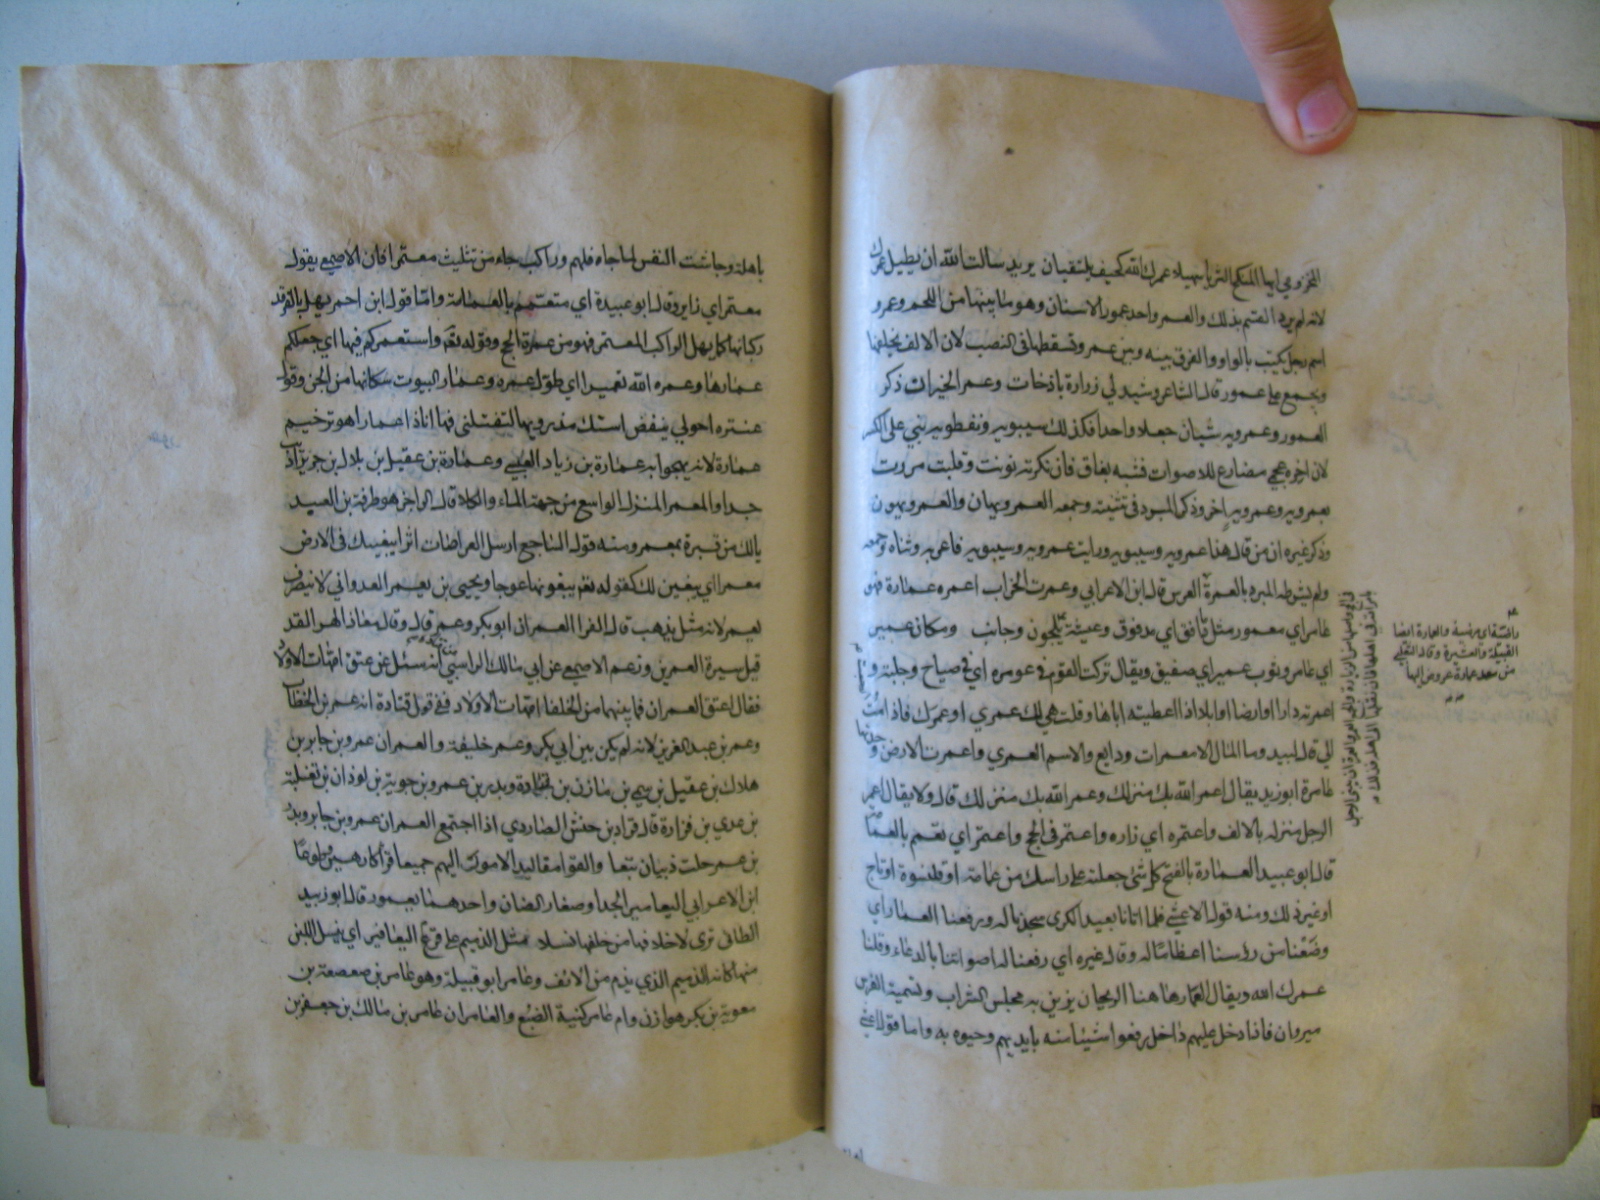 المخزومي ايها المنكح الثريا سهيلا عمرك الله كيف يلتقيان يريد سالت الله ان يطيل عمرك
لانه لم يرد القسم بذلك والعمر واحد عمور الاسنان وهو ما بينها من اللحم وعمرو
اسم رجل يكتب بالواو والفرق بينه وبين عمر وتسقطها في النصب لان الالف تخلفها
ويجمع على عمور قال الشاعر وشيد لي زرارة باذخات وعمر الخيرات ذكر
العمور وعمرويه شيان جعلا واحدا فكذلك سيبويه ونفطويه بني على الكسر
لان اخره عجمي مضارع للاصوات فشبه بغاق فان نكرته نونت وقلت مررت
بعمرويه وعمرويه اخر وذكر المبرد في تثنيته وجمعه العمرويهان والعمرويهون
وذكر غيره ان من قال هذا عمرويه وسيبويه ورايت عمرويه وسيبويه فاعربه وثناه وجمعه
ولم يشرطه المبرد بالعمرة قال ابن الاعرابي وعمرت الخراب اعمره عمارة فهو
عامر اي معمور مثل دافق اي مدفوق وعيشة ومكان عمير
اي عامر وثوب عمير اي صفيق ويقال تركت القوم في عومرة اي في صياح وجلبة و
اعمرته دارا او ارضا او ابلا اذا اعطيته اياها وقلت هي لك عمري او عمرك فاذا مت
الي قال لبيد وما المال الا معمرات ودايع والاسم العمري واعمرت الارض وجدتها
عامرة ابو زيد يقال اعمر الله بك منزلك وعمر الله بك منزلك قال ولا يقال اعمر
الرجل منزله بالالف واعتمره اي زاره واعتمر في الحج واعتمر اي تعمم بالعمامة
قال ابو عبيد العمارة بالفتح كل شئ جعلته على راسك من عمامة او قلنسوة او تاج
او غير ذلك ومنه قول الاعشى فلما اتانا بعيد الكرى سجدنا له ورفعنا العمارا اي
وضعنا من رؤسنا اعظاما له وقال غيره اي رفعنا له اصواتنا بالدعاء وقلنا
عمرك الله ويقال العمار هاهنا الريحان يزين به مجلس الشراب وتسميه الفرس
ميروان فاذا دخل عليهم داخل رفعوا شيئا منه بايديهم وحيوه به واما قول اعشى
والعمارة ايضا
القبيلة والعشيرة وقال التغلبي
من معد عمارة عروض اليها
باهلة وجاشت النفس لما جاء فلهم وراكب جاء من تثليث معتمرا فان الاصمعي يقول
معتمر اي زاير وقال ابو عبيدة اي متعمم بالعمامة واما قول ابن احمر يهل بالفرقد
ركبانها كما يهل الراكب المعتمر فهو من عمرة الحج وقوله تعم واستعمركم فيها اي جعلكم
عمارها وعمره الله تعميرا اي طول عمره وعمار البيوت سكانها من الجن وقول
عنترة احولي ينفض استك مذرويها لتقتلني فها اناذا عمارا هو ترخيم
عمارة لانه يهجو به عمارة بن زياد العبسي وعمارة بن عقيل بن بلال بن جرير
جدا والمعمر المنزل الواسع من جهة الماء والكلا قال الراجز هو طرفة بن العبد
يالك من قبرة بمعمر ومنه قول الساجع ارسل العراضات اثرا يبغينك في الارض
معمرا اي يبغين لك كقوله تعم يبغونها عوجا ويحيى بن يعمر العدواني لا ينصرف
يعمر لانه مثل يذهب قال الفرا العمران ابو بكر وعمر قال وقال معاذ الهرا لقد
قيل سيرة العمرين وزعم الاصمعي عن ابي هلال الراسبي انه سئل عن عتق امهات الاولاد
فقال اعتق العمران فما بينهما من الخلفا امهات الاولاد ففي قول قتادة انه عمر بن الخطاب
وعمر بن عبد العزيز لانه لم يكن بين ابي بكر وعمر خليفة والعمران عمرو بن جابر بن
هلال بن عقيل بن سمي بن مازن بن فزارة وبدر بن عمرو بن جوية بن لوذان بن ثعلبة
بن عدي بن فزارة قال قراد بن حنش الصاردي اذا اجتمع العمران عمرو بن جابر وبدر
بن عمرو خلت ذبيان تبعا والقوا مقاليد الامور اليهم جميعا قماء كارهين وطوعا
ابن الاعرابي اليعامير الجدا وصغار الضان واحدها يعمور قال ابو زبيد
الطائي ترى لاخلافها من خلفها نسلا مثل الذميم على قزم اليعامير اي ينسل اللبن
منها كانه الذميم الذي يذم من الانف وعامر ابو قبيلة وهو عامر بن صعصعة بن
معوية بن بكر هوازن وام عامر كنية الضبع والعامران عامر بن مالك بن جعفر بن